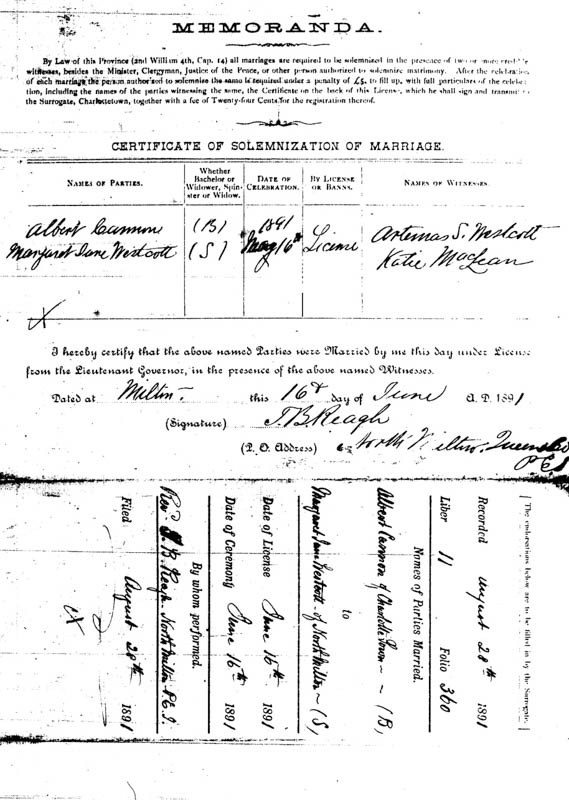 MEMORANDA.
By Law of this Province (2nd William 4th, Cap. 14) all marriages are required to be solemnized in the presence of two or more credible
witnesses, besides the Minister, Clergyman, Justice of the Peace, or other person authorized to solemnize matrimony. After the celebration
of each marriage the person authorized to solemnize the same is required under a penalty of £5, to fill up, with full particulars of the celebra-
tion, including the names of the parties witnessing the same, the Certificate on the back of this License, which he shall sign and transmit to
the Surrogate, Charlottetown, together with a fee of Twenty-four Cents for the registration thereof.
CERTIFICATE OF SOLEMNIZATION OF MARRIAGE.
NAMES OF PARTIES. Whether Bachelor or Widower, Spinster or Widow. DATE OF CELEBRATION. BY LICENSE OR BANNS. NAMES OF WITNESSES.
Albert Cannon (B) 1891 License Artemas S. Westcott
Margaret Jane Westcott (S) 16th Katie MacLean
I hereby certify that the above named Parties were Married by me this day under License
from the Lieutenant Governor, in the presence of the above named Witnesses.
Dated at Milton this 16th day of June A. D. 1891
(Signature) J. B. Reagh
(P. O. Address) North Milton, Queens Co
P. E. I
[The endorsations below are to be filled in by the Surrogate.]
Recorded August 28th 1891
Liber 11 Folio 360
Names of Parties Married.
Albert Cannon of Charlottetown – (B)
to
Margaret Jane Westcott – of North Milton – (S)
Date of License June 16th 1891
Date of Ceremony June 16th 1891
By whom performed.
Revd J. B. Reagh – North Milton P.E.I.
Filed August 28th 1891